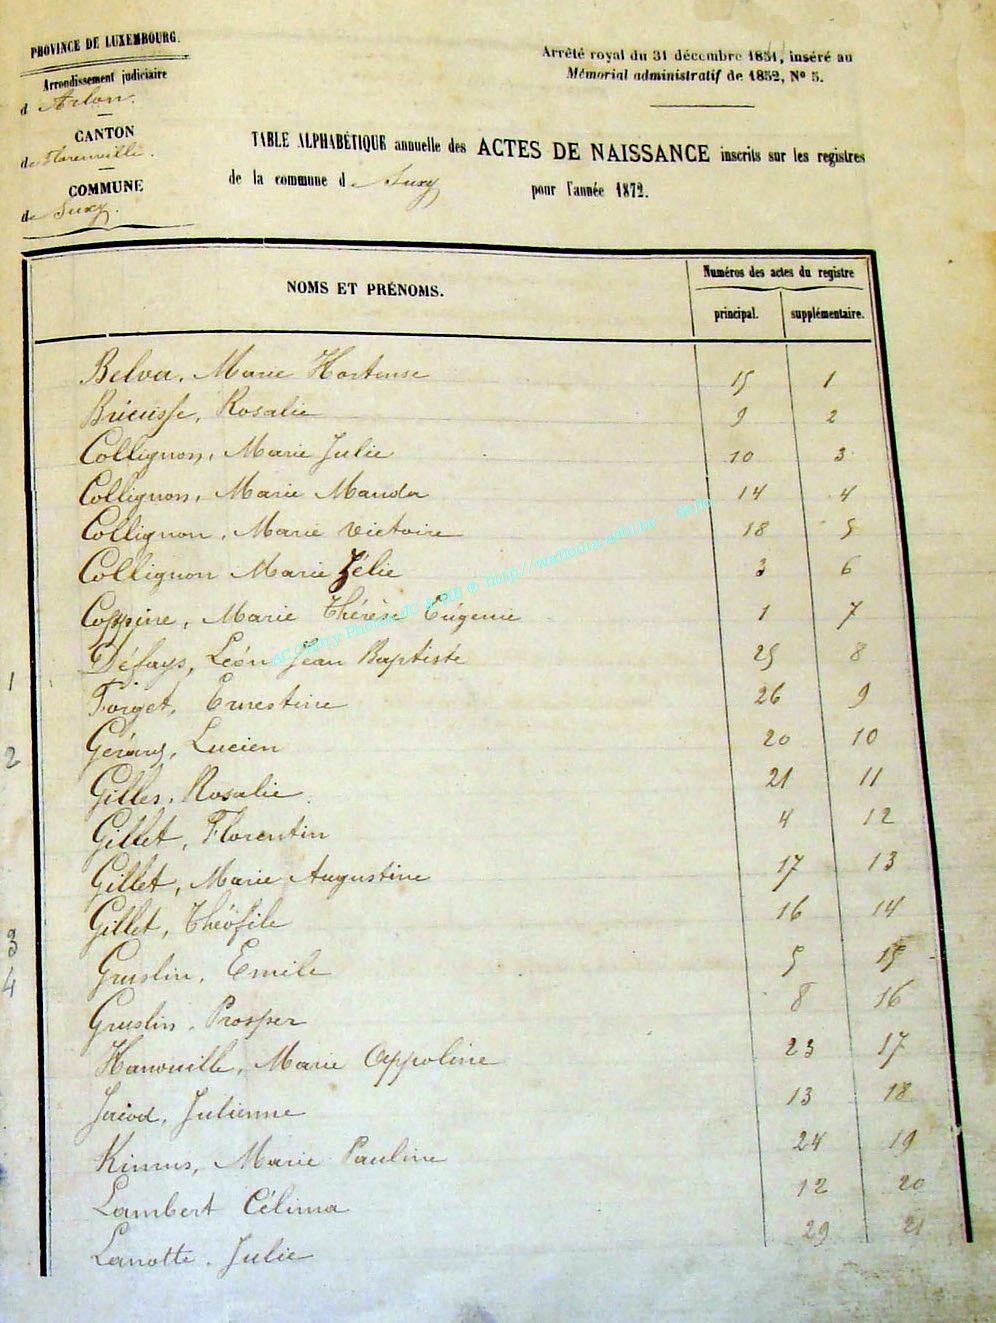 PROVINCE DE LUXEMBOURG.
Arrondissement judiciaire
d Arlon.
CANTON
de Florenville.
COMMUNE
de Suxy.
Arrêté royal du 31 décembre 1851, inséré au
Mémorial administratif de 1852, N° 5.
TABLE ALPHABÉTIQUE annuelle des ACTES DE NAISSANCE inscrits sur les registres
de la commune d Suxy pour l'année 1872.
NOMS ET PRÉNOMS.
Numéros des actes du registre
principal. supplémentaire.
Belva, Marie Hortense 15 1
Bricusse, Rosalie 9 2
Collignon, Marie Julie 10 3
Collignon, Marie Manda 14 4
Collignon, Marie Victoire 18 5
Collignon Marie Zélie 3 6
Coppine, Marie Thérèse Eugénie 1 7
1 Défays, Léon Jean Baptiste 25 8
Forget, Ernestine 26 9
2 Gérard, Lucien 20 10
Gilles, Rosalie 21 11
Gillet, Florentin 4 12
Gillet, Marie Augustine 17 13
Gillet, Théofile 16 14
3 Gruslin, Emile 5 15
4 Gruslin, Prosper 8 16
Hanouille, Marie Appoline 23 17
Julienne 13 18
Marie Pauline 24 19
Lambert Célima 12 20
Lanotte, Julie 29 21